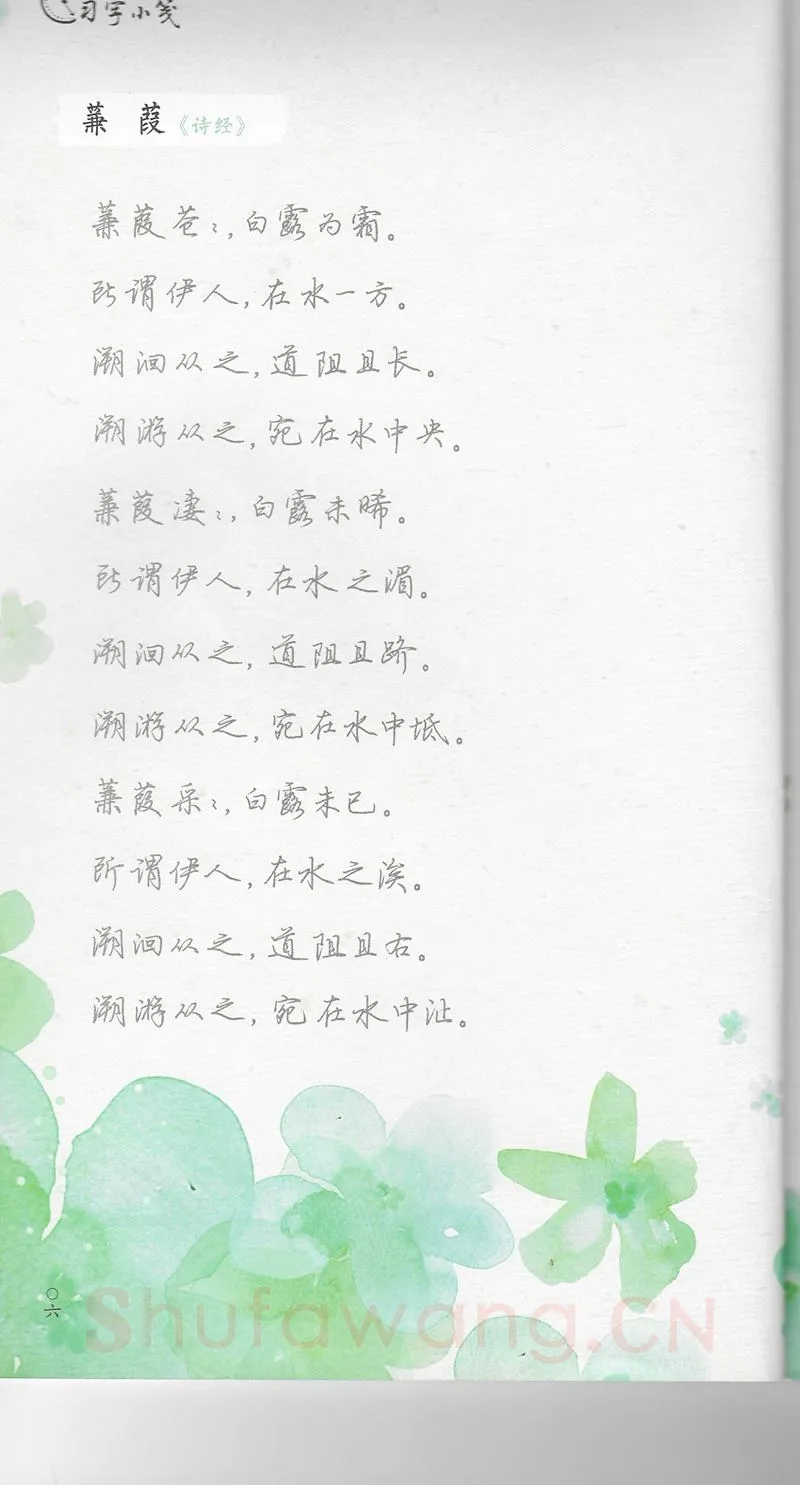 习字小笺
蒹葭《诗经》
蒹葭苍〻,白露为霜。
所谓伊人,在水一方。
溯洄从之,道阻且长。
溯游从之,宛在水中央。
蒹葭凄〻,白露未晞。
所谓伊人,在水之湄。
溯洄从之,道阻且跻。
溯游从之,宛在水中坻。
蒹葭采〻,白露未已。
所谓伊人,在水之涘。
溯洄从之,道阻且右。
溯游从之,宛在水中沚。
〇六
Shufawang.CN